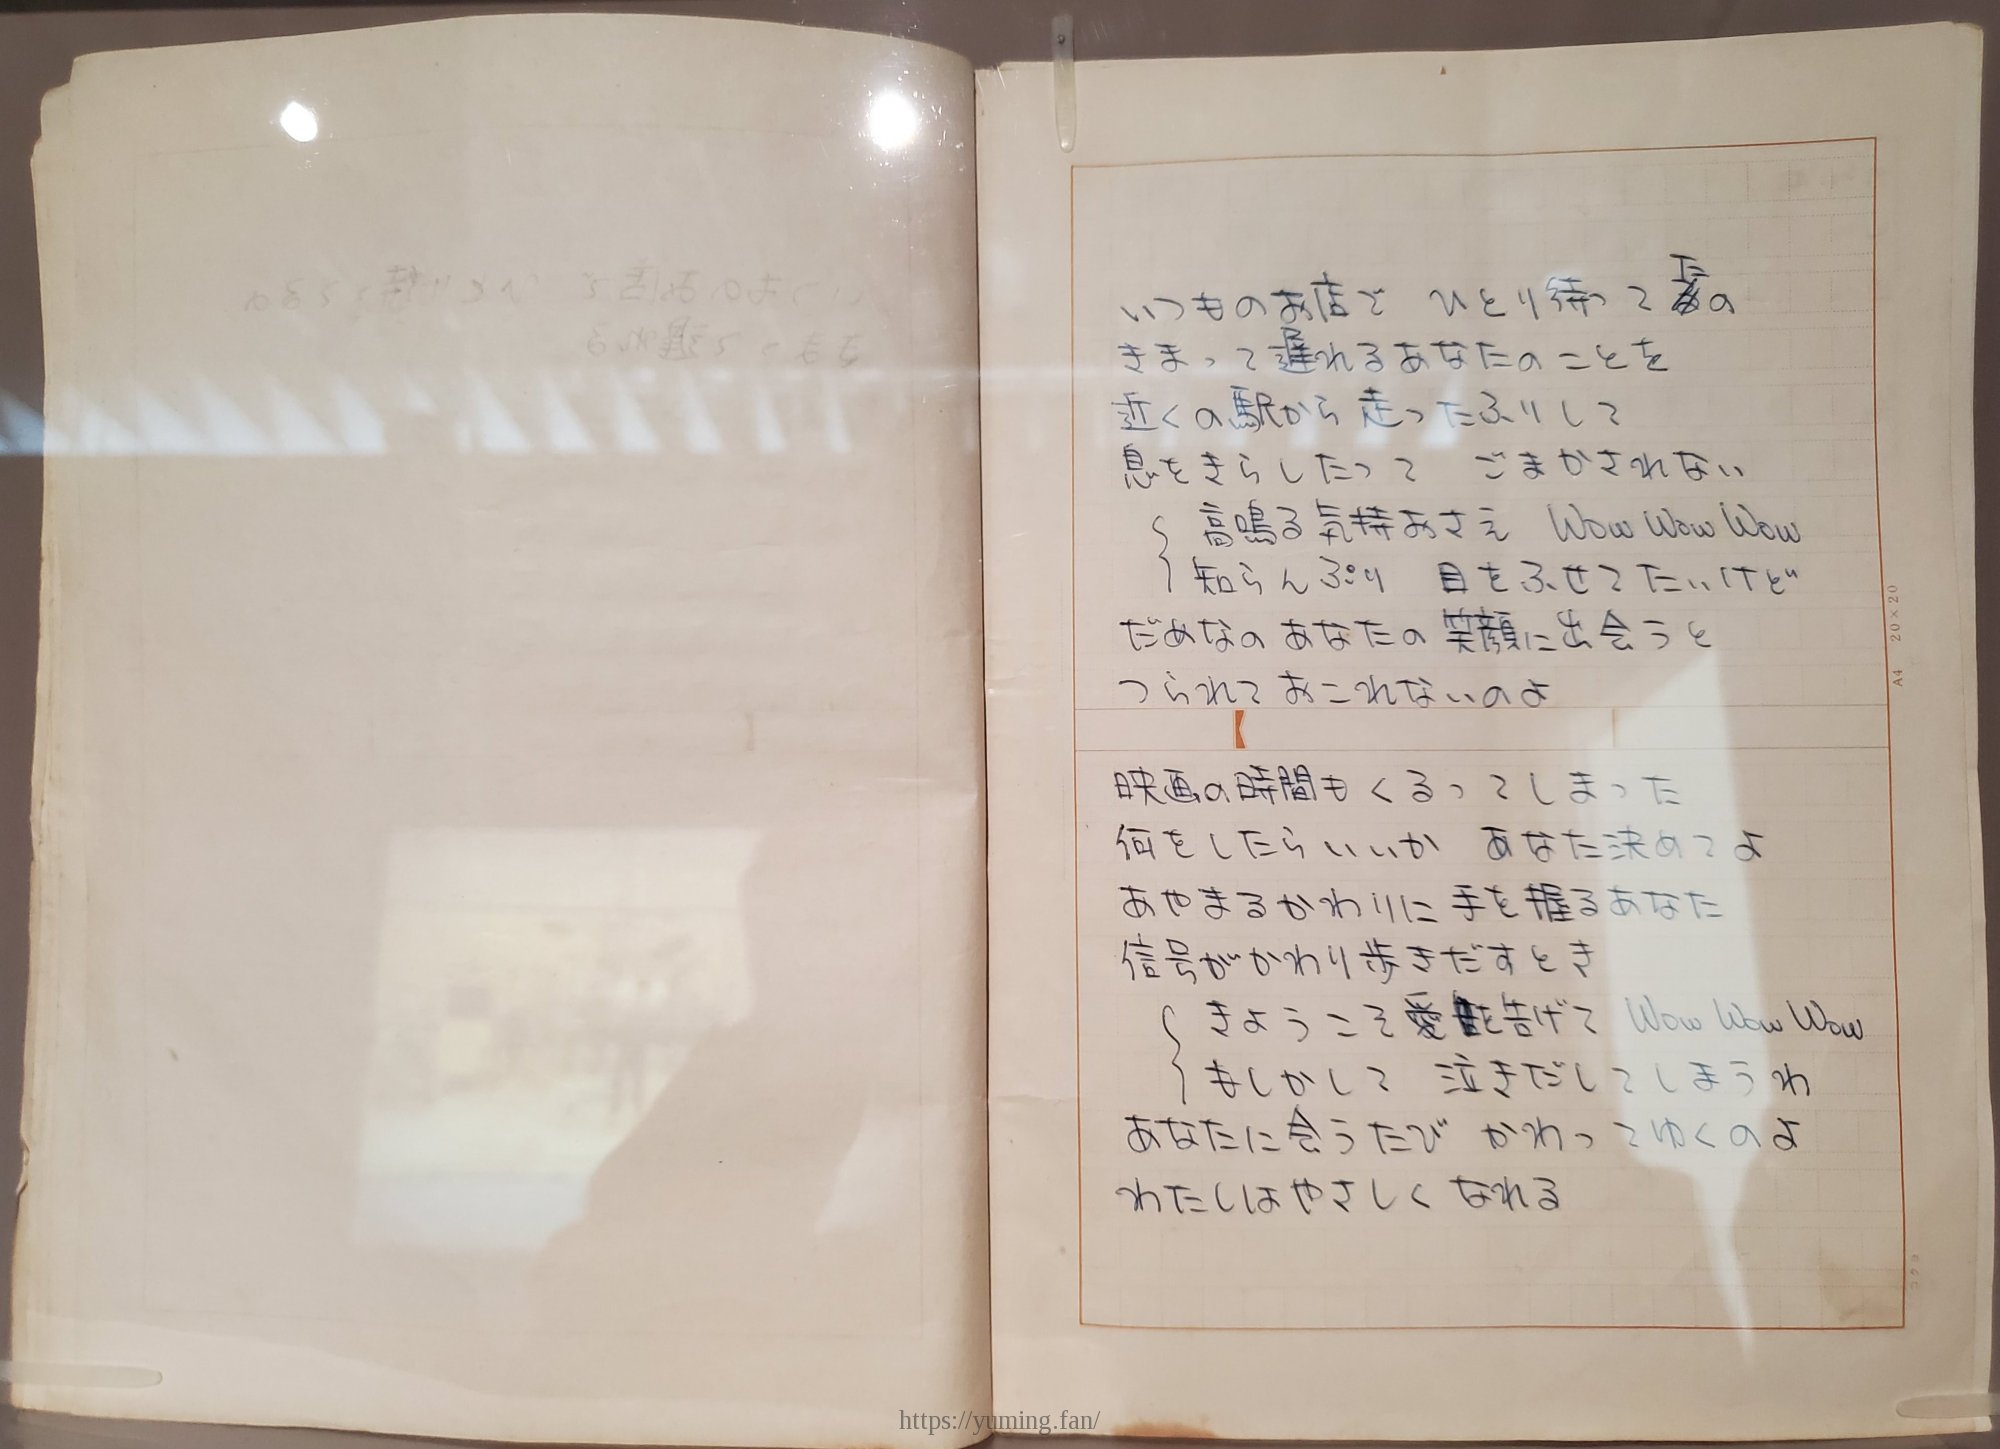 いつものお店で ひとり待ってたの
きまって遅れるあなたのことを
近くの駅から走ったふりして
息をきらしたって ごまかされない
高鳴る気持おさえ Wow Wow Wow
知らんぷり 目をふせてたいけど
だめなの あなたの笑顔に出会うと
つられておこれないのよ
映画の時間もくるってしまった
何をしたらいいか あなた決めてよ
あやまるかわりに手を握るあなた
信号がかわり歩きだすとき
きょうこそ愛を告げて Wow Wow Wow
もしかして 泣きだしてしまうわ
あなたに会うたび かわってゆくのよ
わたしはやさしく なれる
A4 20×20
コクヨ
https://yuming.fan/